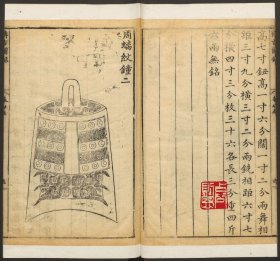 周蟠紋鐘二
高七寸鈕高一寸六分闊一寸二分兩舞相
距三寸九分橫三寸二分兩銑相距六寸七
分橫四寸三分枚三十六各長三分重四斤
六兩無銘